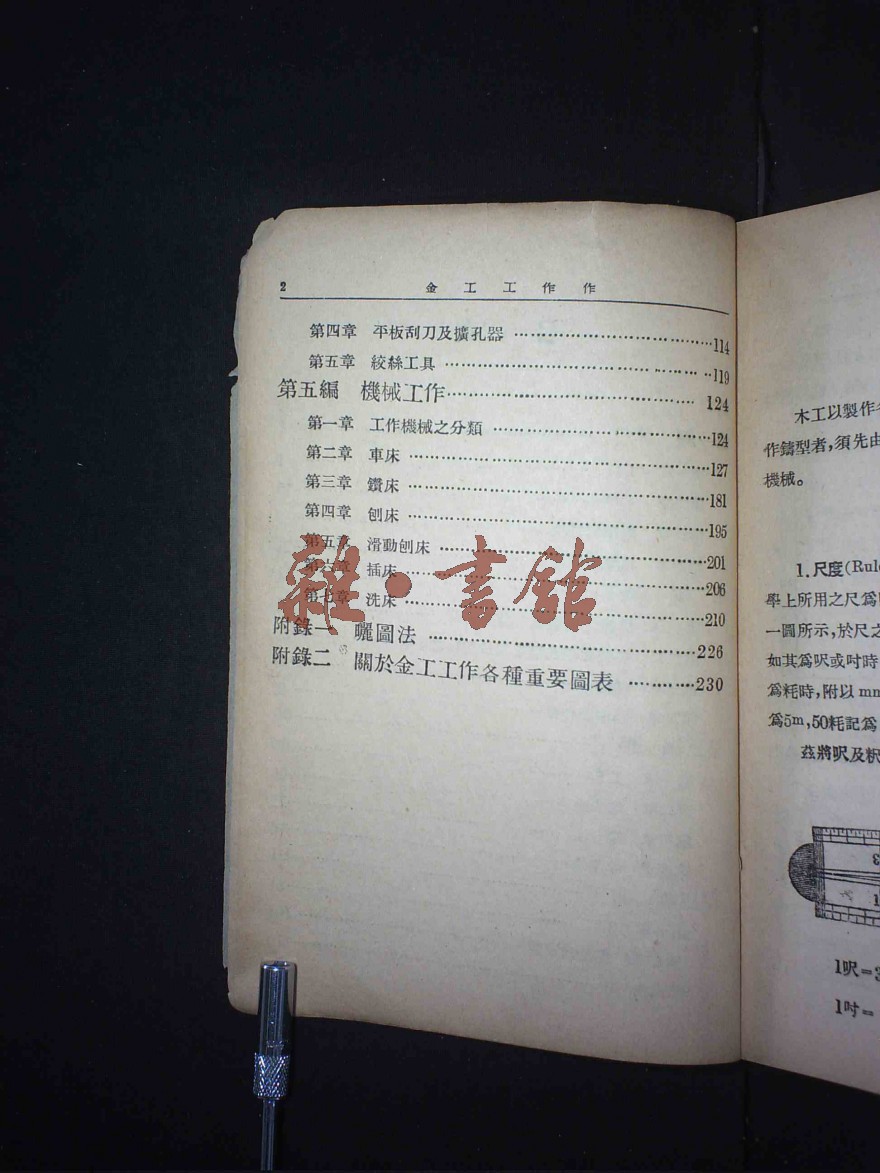 2 金工工作作
第四章 平板刮刀及擴孔器 ……114
第五章 絞絲工具 ……119
第五編 機械工作……124
第一章 工作機械之分類 ……124
第二章 車床 ……127
第三章 鑽床 ……181
第四章 刨床 ……195
第五章 滑動刨床 ……201
第六章 插床 ……206
第七章 洗床 ……210
附錄一 曬圖法 ……226
附錄二 關於金工工作各種重要圖表 ……230
雜·書館
木工以製作
作鑄型者,須先由
機械。
1.尺度(Rul
學上所用之尺爲
一圖所示,於尺之
如其爲呎或吋時
爲粍時,附以 mm
爲5m,50粍記爲
茲將呎及
1呎=3
1吋=